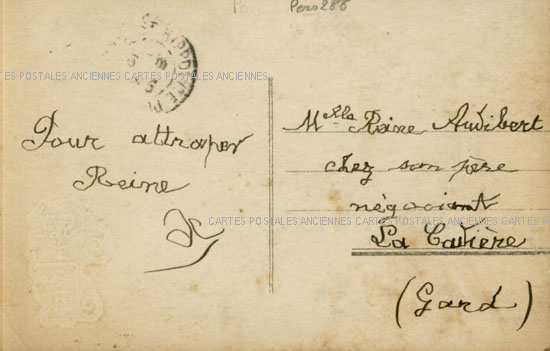 Pers 286
HIPPOLYTE
CARTES POSTALES ANCIENNES CARTES POSTALES ANCIENNES
Pour attraper
Reine
Melle Reine Audibert
chez son père
négociant
CARTES POSTALES ANCIENNES CARTES POSTALES ANCIENNES
La Cadière
(Gard)